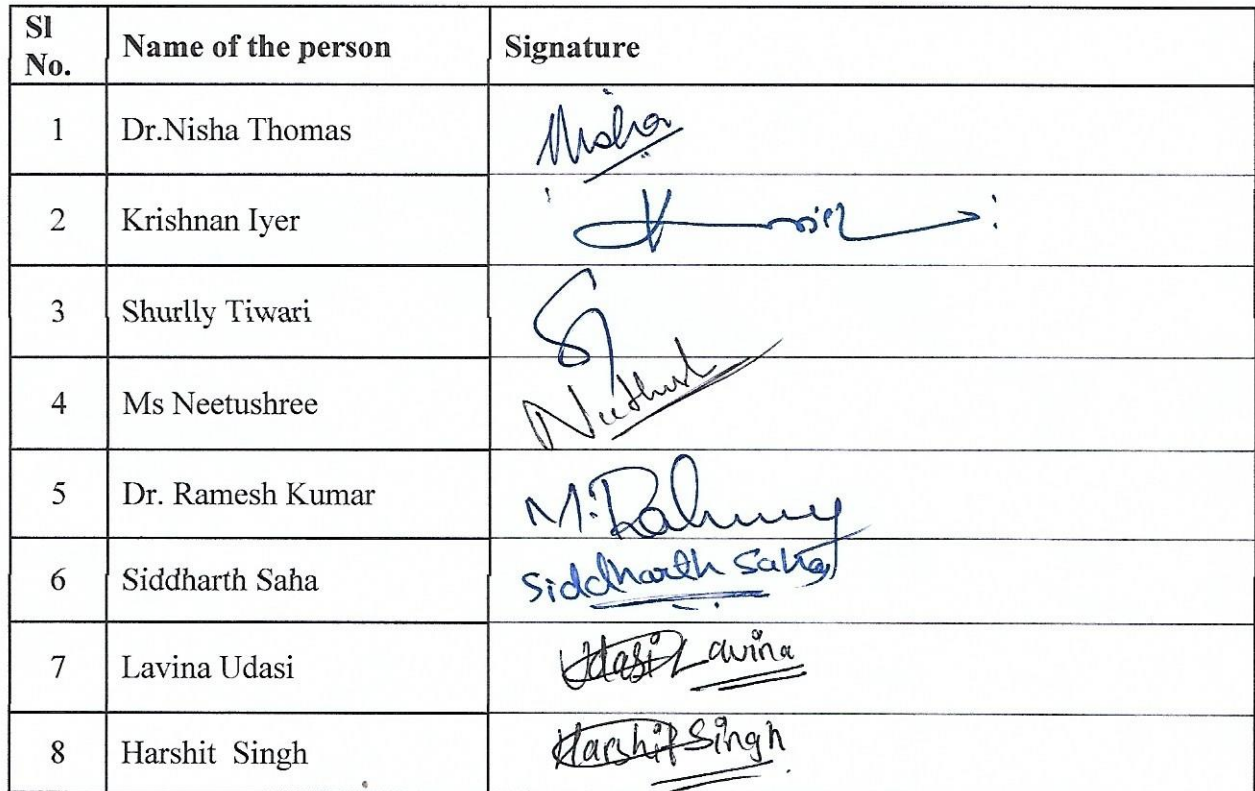 Sl No. Name of the person Signature
1 Dr.Nisha Thomas Nisha
2 Krishnan Iyer
3 Shurlly Tiwari
4 Ms Neetushree
5 Dr. Ramesh Kumar
6 Siddharth Saha Siddharth Saha
7 Lavina Udasi Udasi Lavina
8 Harshit Singh Harshit Singh